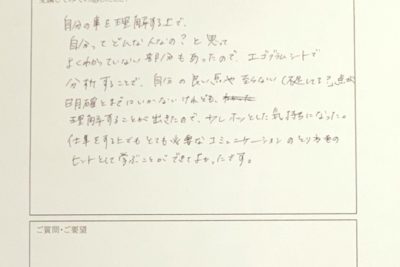 自分の事を理解する上で、
自分ってどんな人なの？と思って
よくわかっていない部分もあったので、エゴグラムシートで
分析することで、自分の良い点や至らない（不足してる？）点が
明確とまでにいかないけれども、
理解することが出来たので、少しホッとした気持ちになった。
仕事をする上でもとても必要なコミュニケーションのとり方の
ヒントとして学ぶことができてよかったです。
ご質問・ご要望